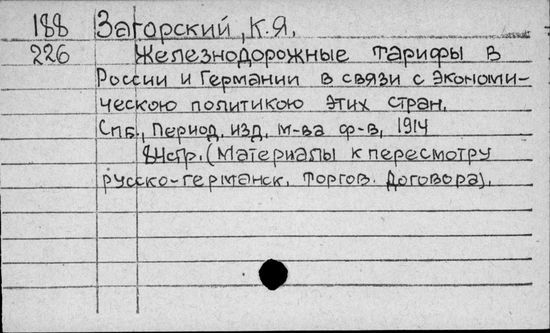 188 Загорский, К.Я.
226 Железнодорожные тарифы в
России и Германии в связи с экономи-
ческою политикою этих стран.
Спб., Период. изд. м-ва ф-в, 1914
(Материалы к пересмотру
русско-германск. торгов. договора).